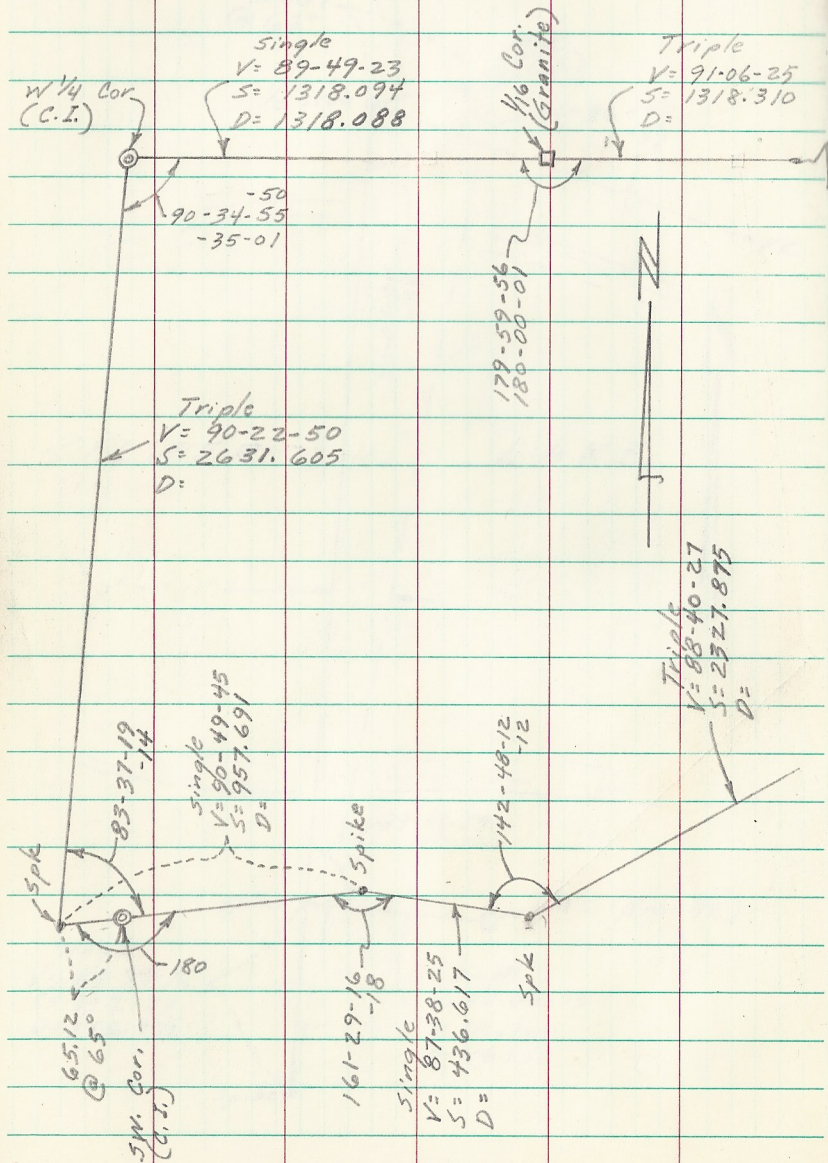 W 1/4 Cor
(C.I.)
Single
V= 89-49-23
S= 1318.094
D= 1318.088
1/16 Cor.
(Granite)
Triple
V= 91-06-25
S= 1318.310
D=
-50
90-34-55
-35-01
179-59-56
180-00-01
N
Triple
V= 90-22-50
S= 2631.605
D=
Triple
V= 88-40-27
S= 2327.875
D=
Spk
83-37-19
-14
Single
V= 90-49-45
S= 957.691
D=
Spike
142-48-12
-12
180
65.12
@ 65°
SW. Cor.
(C.I.)
161-29-16
-18
Single
V= 87-38-25
S= 436.617
D=
Spk